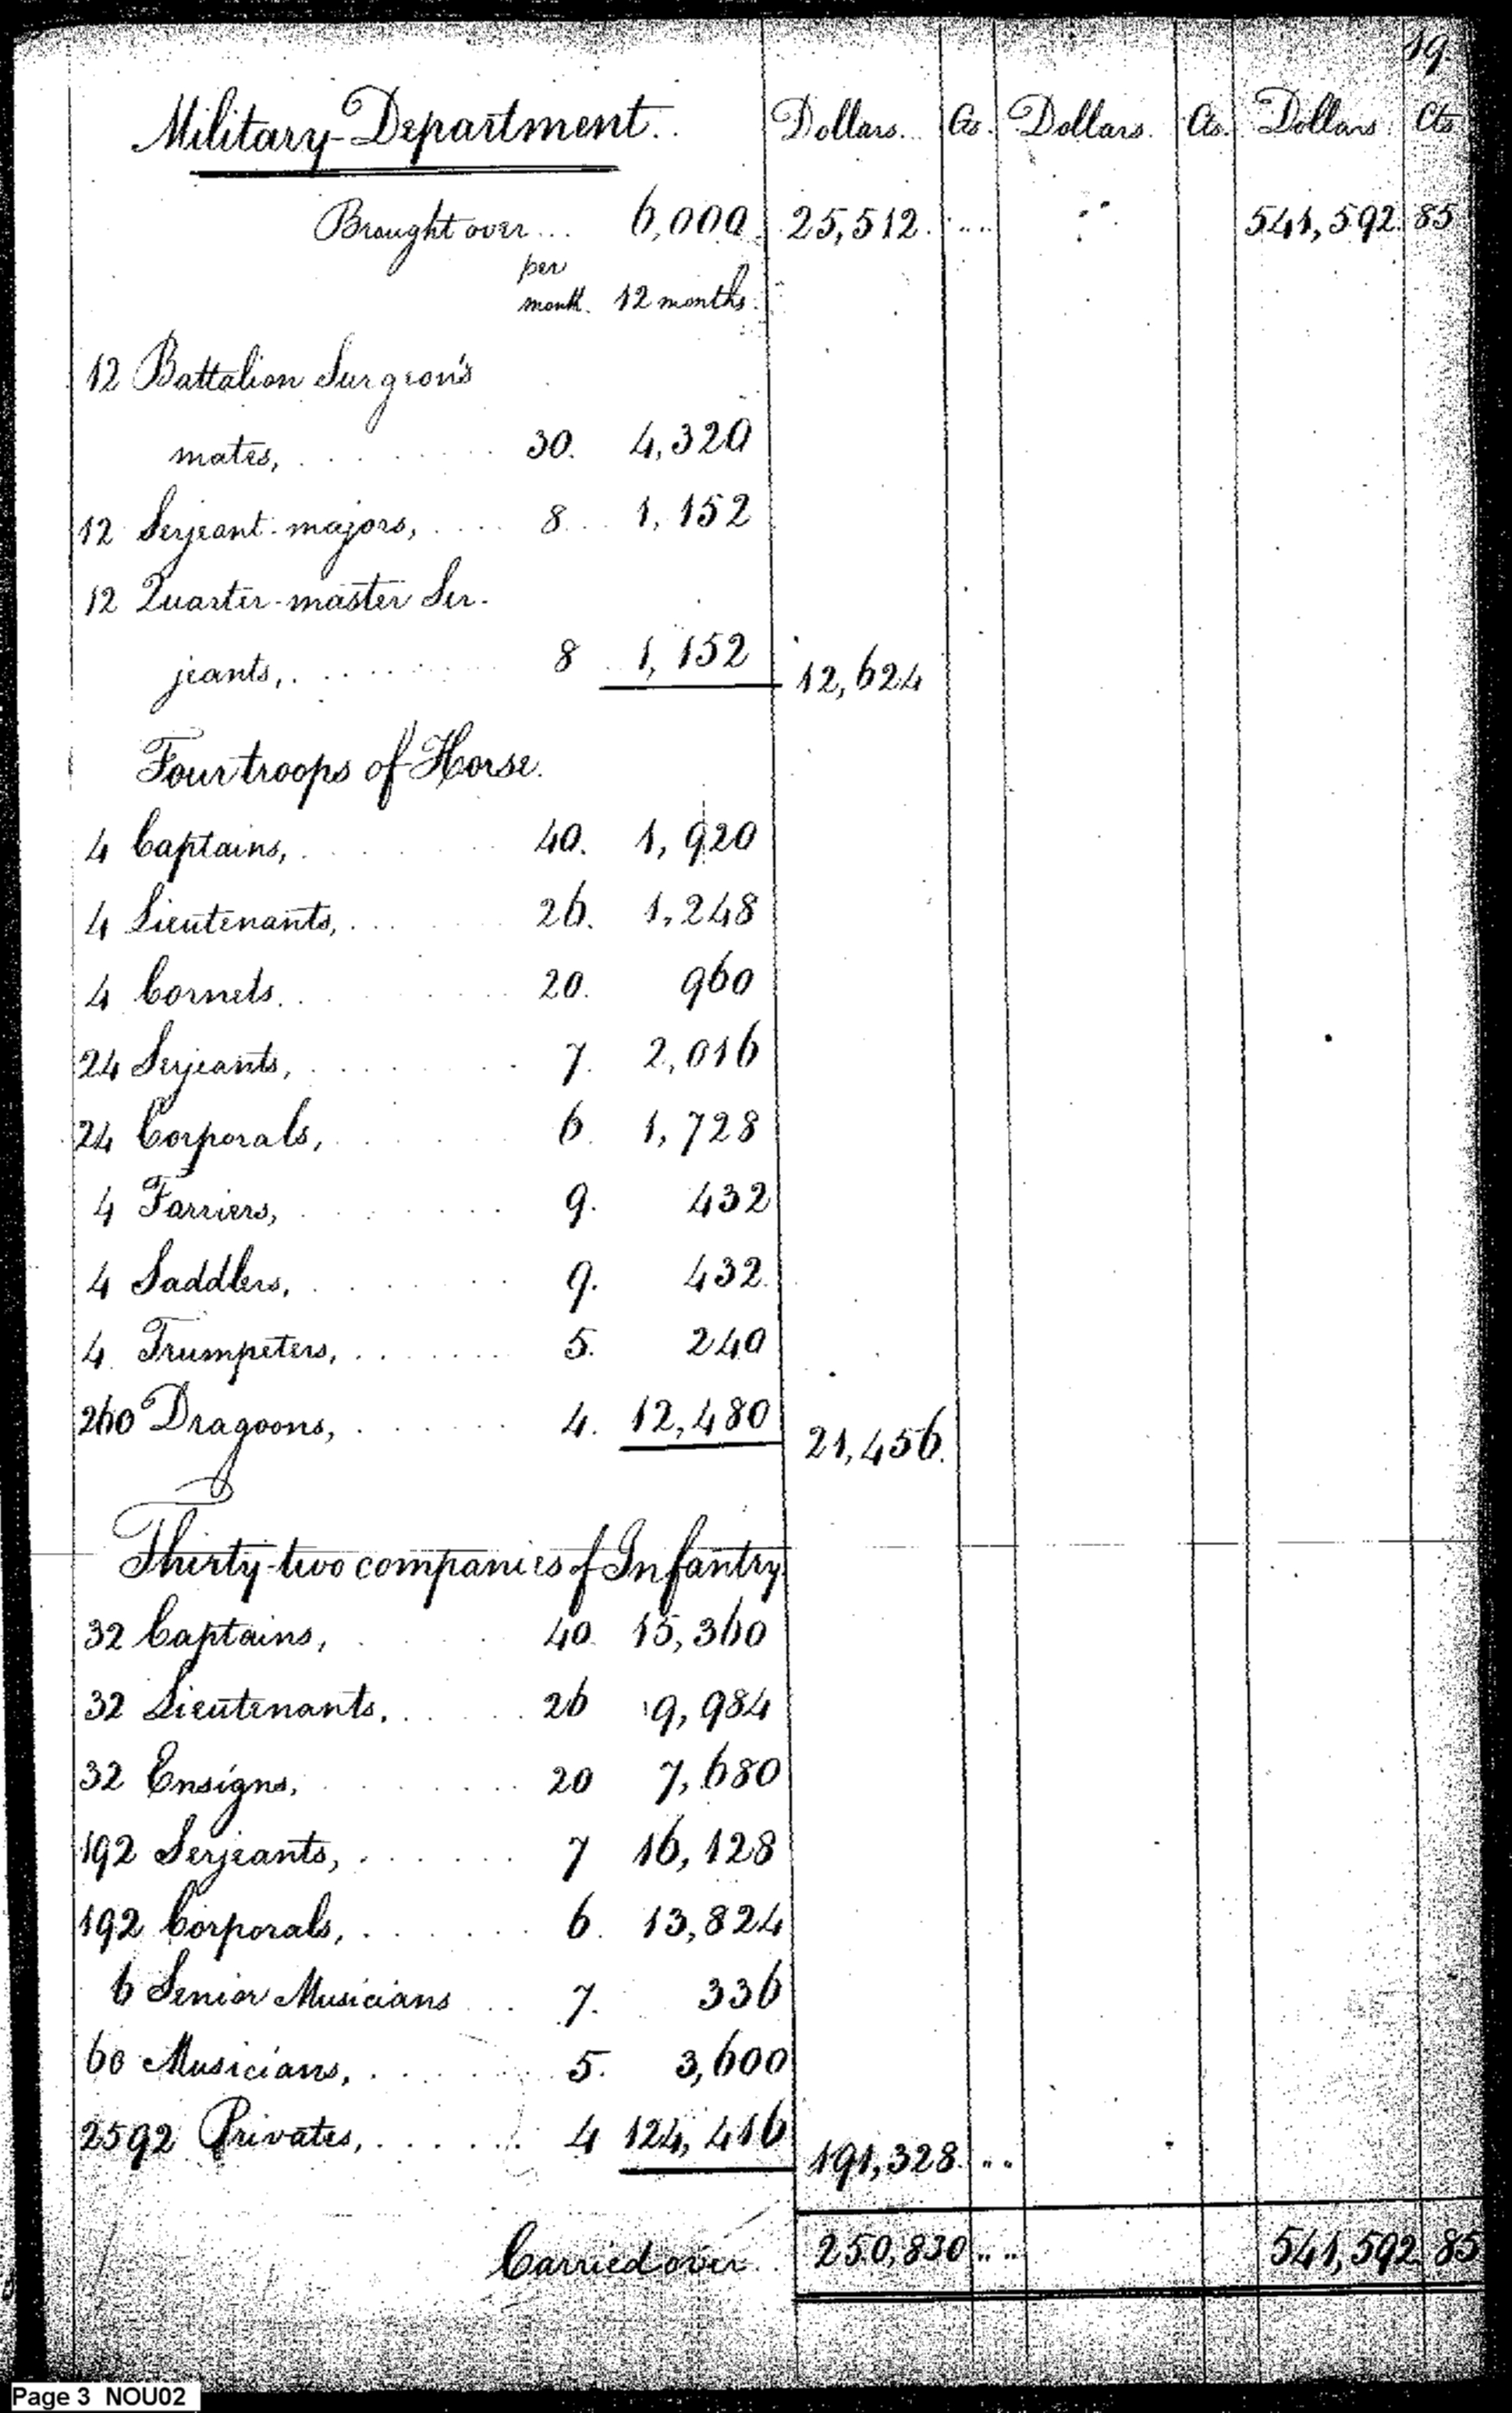 19.
Military Department. Dollars. Cts. Dollars. Cts. Dollars Cts
Brought over... 6,000 25,512. .... " 541,592. 85
per
month. 12 months.
12 Battalion Surgeon's
mates, . . . . . . . . 30. 4,320
12 Serjeant-majors, . . . . 8 . . 1,152
12 Quarter-master Ser-
jeants, . . . . . . . . 8 . . 1,152 12,624
Four troops of Horse.
4 Captains, . . . . . . . 40. 1,920
4 Lieutenants, . . . . . . 26. 1,248
4 Cornets. . . . . . . . 20. 960
24 Serjeants, . . . . . . . 7. 2,016
24 Corporals, . . . . . . 6. 1,728
4 Farriers, . . . . . . . 9. 432
4 Saddlers, . . . . . . . 9. 432
4 Trumpeters, . . . . . . 5. 240
260 Dragoons, . . . . . . 4. 12,480 21,456.
Thirty-two companies of Infantry
32 Captains, . . . . . 40. 15,360
32 Lieutenants, . . . . . 26 9,984
32 Ensigns, . . . . . . 20 7,680
192 Serjeants, . . . . . . 7 16,128
192 Corporals, . . . . . . 6. 13,824
6 Senior Musicians . . . 7. 336
60 Musicians, . . . . . . 5. 3,600
2592 Privates, . . . . . . 4 124,416 191,328. ..
Carried over . . 250,830 .. .. 541,592 85
Page 3 NOU02